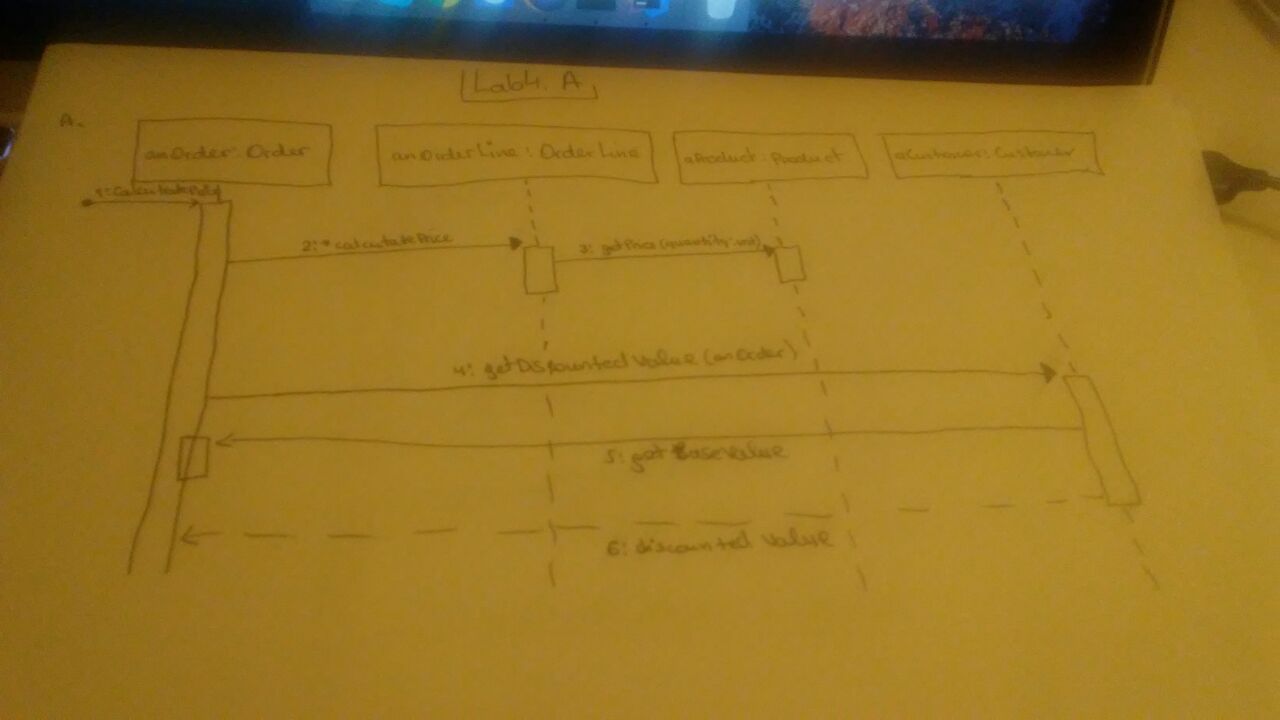 Lab4. A
A.
anOrder: Order
anOrderLine: OrderLine
aProduct: Product
aCustomer: Customer
2: * calculatePrice
3: getPrice(quantity:int)
4: getDiscounted Value (anOrder)
5: get BaseValue
6: discounted value